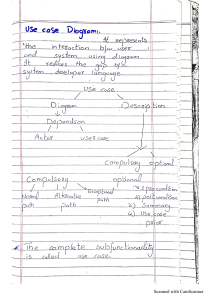 Use case Diagram:.
It represents
the interaction b/w user
and system using diagram
It reduces the gap b/w
system developer language
Use case
Diagram Description
Dependson
Actor usecase
Compulsory optional
Compulsory optional
Normal path Alternative path Exceptional path
1) precondition
2) postcondition
3) Summary
4) Use case
* The complete subfunctionality
is called use case.
Scanned with CamScanner